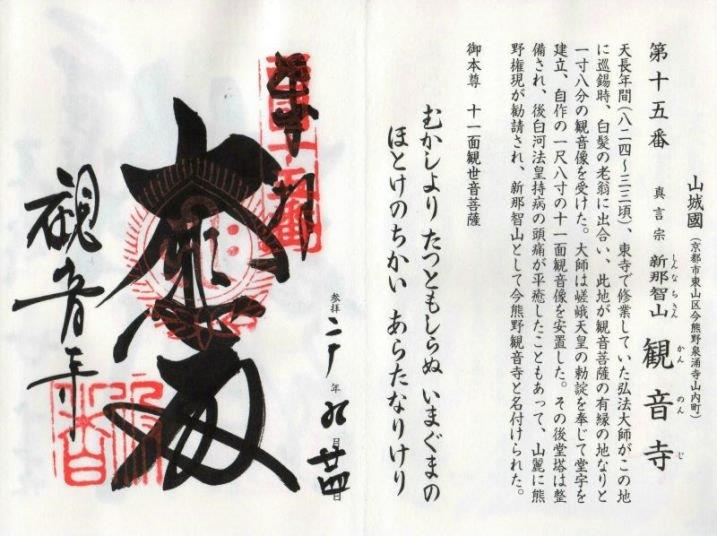 山城國(京都市東山区今熊野泉涌寺山内町)
第十五番 真言宗 新那智山 観音寺
しんなちさん かんのんじ
天長年間(八二四〜三三頃)、東寺で修業していた弘法大師がこの地
に巡錫時、白髪の老翁に出合い、此地が観音菩薩の有縁の地なりと
一寸八分の観音像を受けた。大師は嵯峨天皇の勅諚を奉じて堂宇を
建立、自作の一尺八寸の十一面観音像を安置した。その後堂塔は整
備され、後白河法皇持病の頭痛が平癒したこともあって、山麓に熊
野権現が勧請され、新那智山として今熊野観音寺と名付けられた。
御本尊 十一面観世音菩薩
むかしより たつともしらぬ いまぐまの
ほとけのちかい あらたなりけり
参拝 年 九月 廿四日
奉拝
大悲殿
観音寺